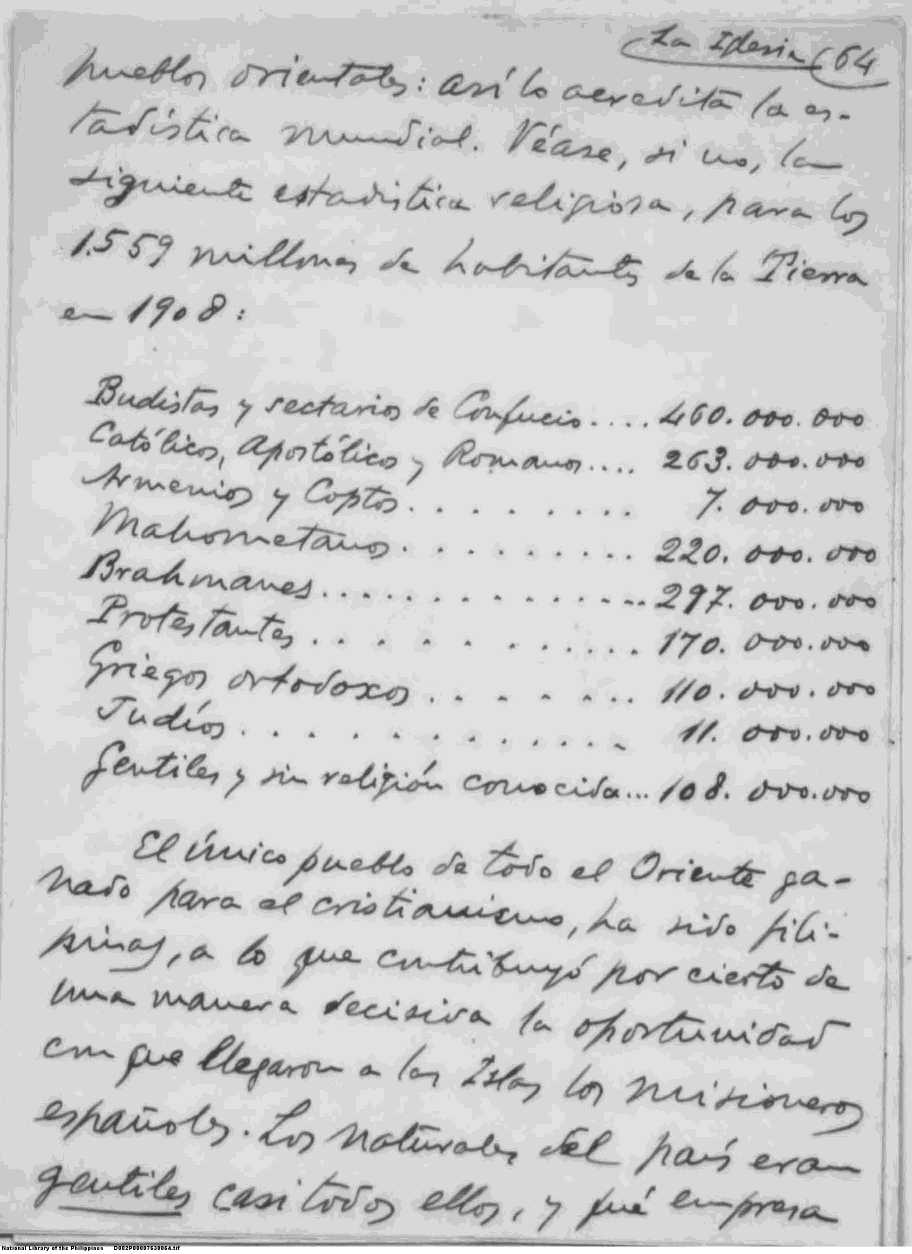 La Iglesia (64
pueblos orientales: así lo acredita la es-
tadística mundial. Véase, si no, la
siguiente estadistica religiosa, para los
1.559 millones de habitantes de la Tierra
en 1908:
Budistas y sectarios de Confucio.... 460.000.000
Católicos, Apostólicos y Romanos.... 263.000.000
Armenios y Coptos......... 7.000.000
Mahometanos.......... 220.000.000
Brahmanes............... 297.000.000
Protestantes............ 170.000.000
Griegos ortodoxos........ 110.000.000
Judíos............. 11.000.000
Gentiles y sin religión conocida... 108.000.000
El único pueblo de todo el Oriente ga-
nado para el cristianismo, ha sido Fili-
pinas, a lo que contribuyó por cierto de
una manera decisiva la oportunidad
con que llegaron a las Islas los misioneros
españoles. Los naturales del país eran
gentiles casi todos ellos, y fué empresa
National Library of the Philippines D002P00097630064.tif